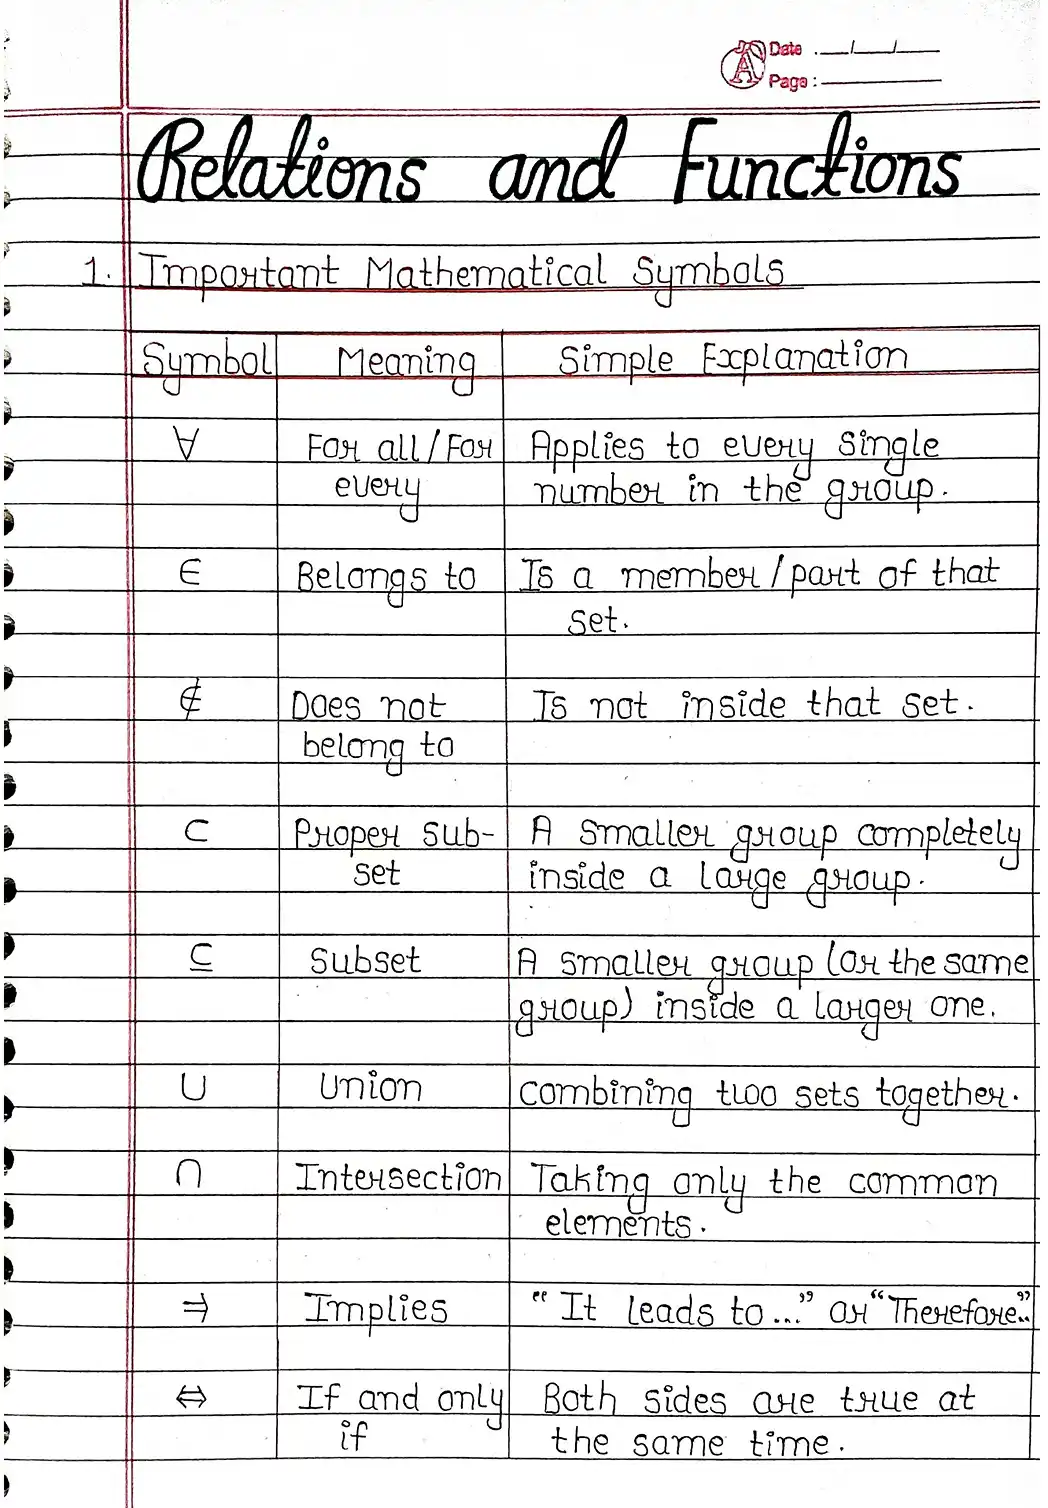 Date : __/__/__
Page :
Relations and Functions
1. Important Mathematical Symbols
Symbol Meaning Simple Explanation
∀ For all/For Applies to every single
every number in the group.
∈ Belongs to Is a member/part of that
set.
∉ Does not Is not inside that set.
belong to
⊂ Proper sub- A smaller group completely
set inside a large group.
⊆ Subset A smaller group (or the same
group) inside a larger one.
∪ Union Combining two sets together.
∩ Intersection Taking only the common
elements.
⇒ Implies "It leads to..." or "Therefore.."
⇔ If and only Both sides are true at
if the same time.